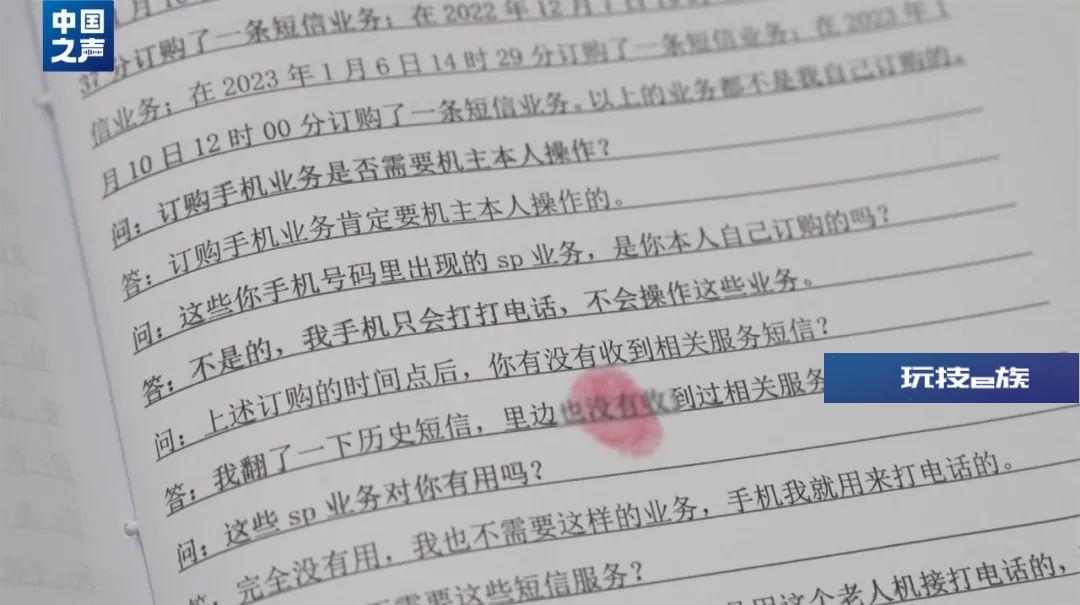 中国之声
月10
37分订购了一条短信业务；在2022年12月7日
信业务；在2023年1月6日14时29分订购了一条短信业务；在2023年1
月10日12时00分订购了一条短信业务。以上的业务都不是我自己订购的。
问：订购手机业务是否需要机主本人操作？
答：订购手机业务肯定要机主本人操作的。
问：这些你手机号码里出现的sp业务，是你本人自己订购的吗？
答：不是的，我手机只会打打电话，不会操作这些业务。
问：上述订购的时间点后，你有没有收到相关服务短信？
答：我翻了一下历史短信，里边也没有收到过相关服务
玩技e族
问：这些sp业务对你有用吗？
答：完全没有用，我也不需要这样的业务，手机我就用来打电话的。
需要这些短信服务？
用这个老人机接打电话的，